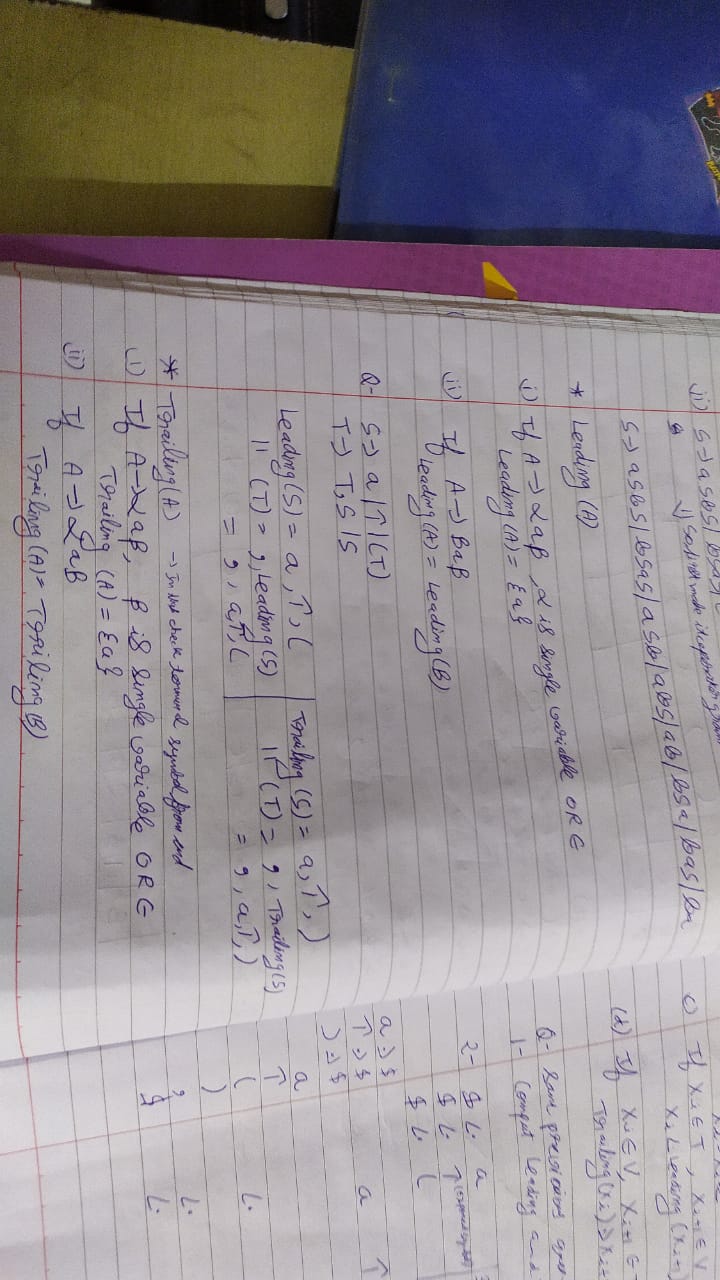 ii) S→ aSbS|bSaS|
S→ aSbS|bSaS|aSb|abS|ab|bSa|baS|ba
* Leading (A)
i) If A → αaβ, α is single variable OR ϵ
Leading (A) = {a}
ii) If A → Baβ
Leading (A) = Leading (B)
Q- S→ a|↑|(T)
T→ T,S|S
Leading (S) = a, ↑, (
" (T) = , , Leading (S)
= , , a, ↑, (
Trailing (S) = a, ↑, )
" (T) = , , Trailing (S)
= , , a, ↑, )
* Trailing (A) → In this check terminal symbol from end
i) If A → αaβ, β is single variable OR ϵ
Trailing (A) = {a}
ii) If A → αaB
Trailing (A) = Trailing (B)
c) If Xi ∈ T, Xi+1 ∈ V
Xi <· Leading (Xi+1
(d) If Xi ∈ V, Xi+1 ∈
Trailing (Xi) ·> Xi+
Q- Same previous
1- Comput Leading and
2- $ <· a
$ <· ↑
$ <· (
a ·> $
↑ ·> $
) ·> $
a ↑
a
↑
( <·
)
, <·
$ <·